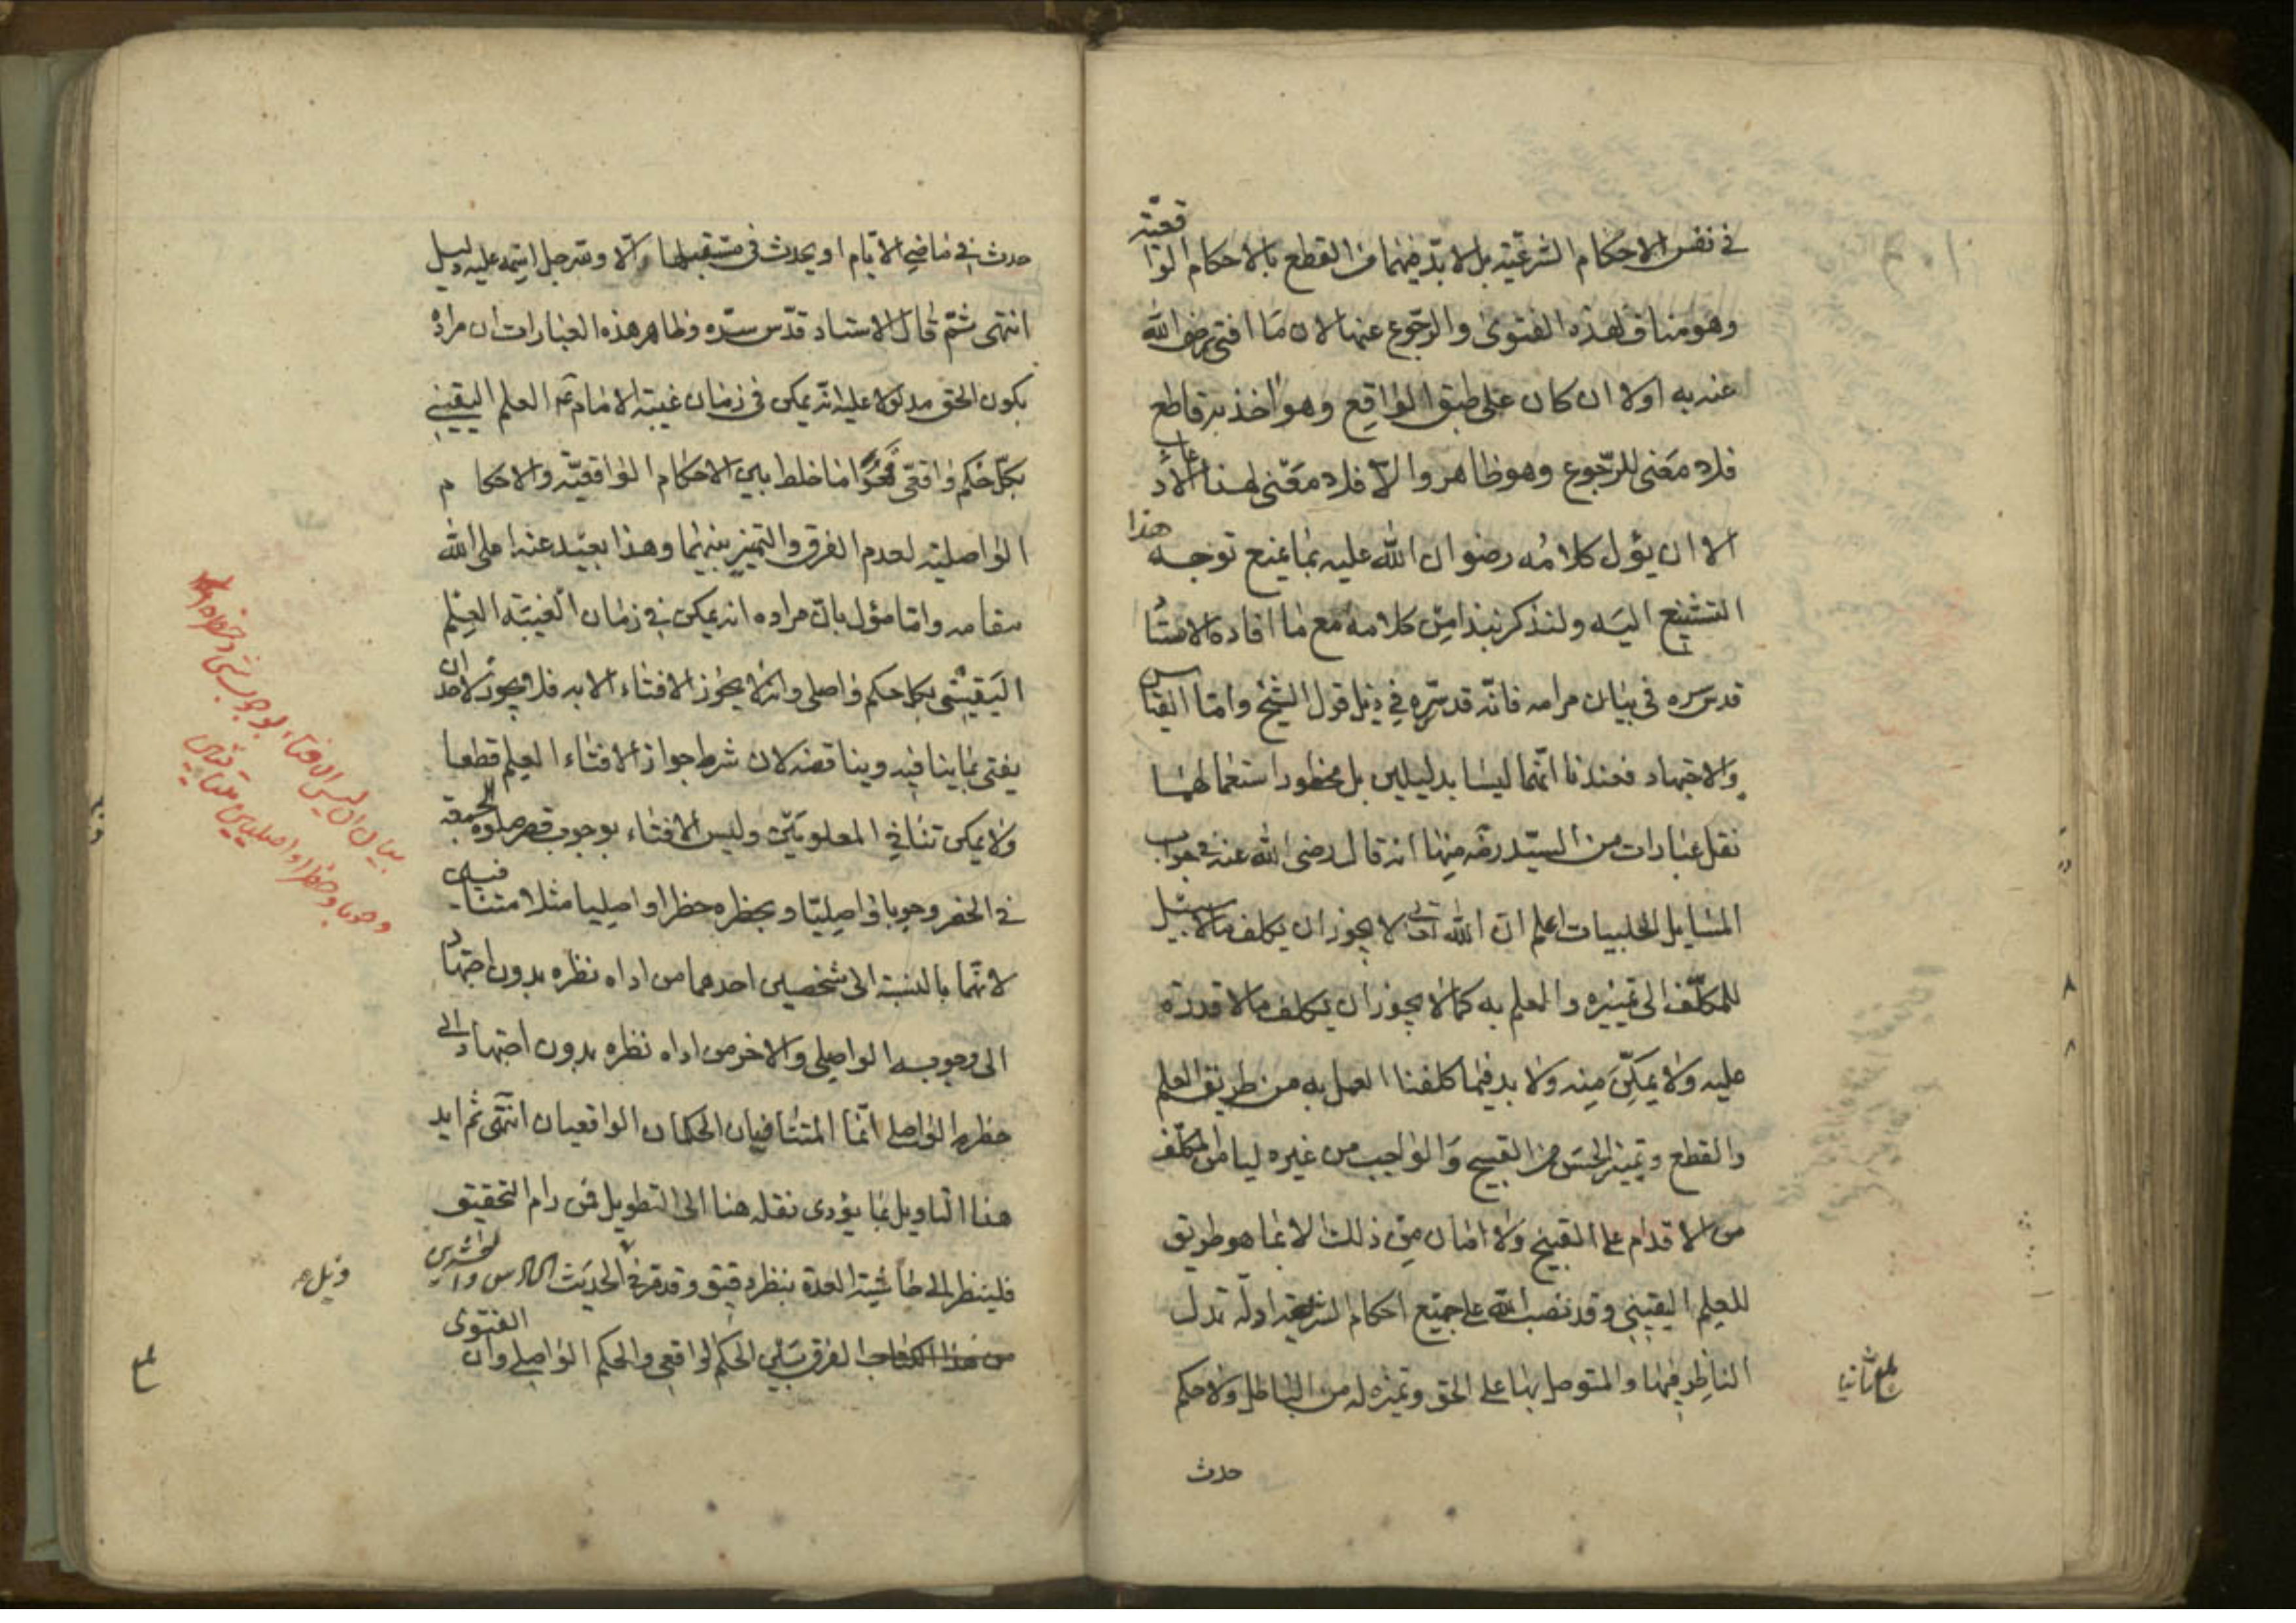 في نفس الاحكام الشرعيّة بل لا بدّ فيهما من القطع بالاحكام الواقعيّة
وهو مناف لهذه الفتوى والرجوع عنها لان ما افتى رضى الله
عنه به اولا ان كان على طبق الواقع وهو اخذ به قاطع
فلا معنى للرّجوع وهو ظاهر والّا فلا معنى لهذا الادعاء
الا ان يؤل كلامه رضوان الله عليه بما يمنع توجه هذا
التشنيع اليه ولنذكر نبذا من كلامه مع ما افاده الاستاد
قدس سره في بيان مرامه فانّه قد سرّه في ذيل قول الشيخ وامّا القياس
والاجتهاد فعندنا انّهما ليسا بدليلين بل محظور استعمالهما
نقل عبارات من السيّد ره منها انه قال رضى الله عنه في جواب
المسايل الحلبيات اعلم انّ الله تعالى لا يجوز ان يكلف ما لا سبيل
للمكلّف الى تمييزه والعلم به كما لا يجوز ان يكلف ما لا قدرة
عليه ولا يمكّن منه ولا بد فيما كلفنا العمل به من طريق العلم
والقطع وتميز الحسن من القبيح والواجب من غيره ليامن المكلّف
من الاقدام على القبيح ولا امان من ذلك الا بما هو طريق
للعلم اليقيني وقد نصب الله على جميع احكام الشريعة ادلّة تدل
الناظر فيها والمتوصل بها على الحق وتميزه له من الباطل ولا حكم
حدث
حدث في ماضي الايّام او يحدث في مستقبلها والّا ولله جل اسمه عليه دليل
انتهى ثمّ قال الاستاد قدّس سرّه وظاهر هذه العبارات ان مراده
بكون الحق مدلولا عليه انّه يمكن في زمان غيبة الامام عم العلم اليقيني
بكلّ حكم واقعيّ فهو اما خلط بين الاحكام الواقعيّة والاحكام
الواصلية لعدم الفرق والتميز بينهما وهذا بعيد عنه اعلى الله
مقامه وامّا مؤل بانّ مراده انه يمكن في زمان الغيبة العلم
اليقيني بكل حكم واصلي وانه لا يجوز الافتاء الا به فلا يجوز لاحد ان
يفتي بما ينافيه ويناقضه لان شرط جواز الافتاء العلم قطعا
ولا يمكن تنافي المعلومين وليس الافتاء بوجوب قصر صلوة الجمعة
في الحضر وجوبا واصليّا وبحظره حظرا واصليا مثلا متنافيين
لانّهما بالنسبة الى شخصين احدهما من اداه نظره بدون اجتهاد
الى وجوبه الواصلي والاخر من اداه نظره بدون اجتهاد الى
حظره الواصلي انّما المتنافيان الحكمان الواقعيان انتهى ثم ايد
هذا التاويل بما يؤدى نقله هنا الى التطويل فمن رام التحقيق
فلينظر الى حاشية العدة بنظر دقيق وقد مر في الحديث السادس والعشرين
من هذا الكتاب الفرق بين الحكم الواقعي والحكم الواصلي وان الفتوى